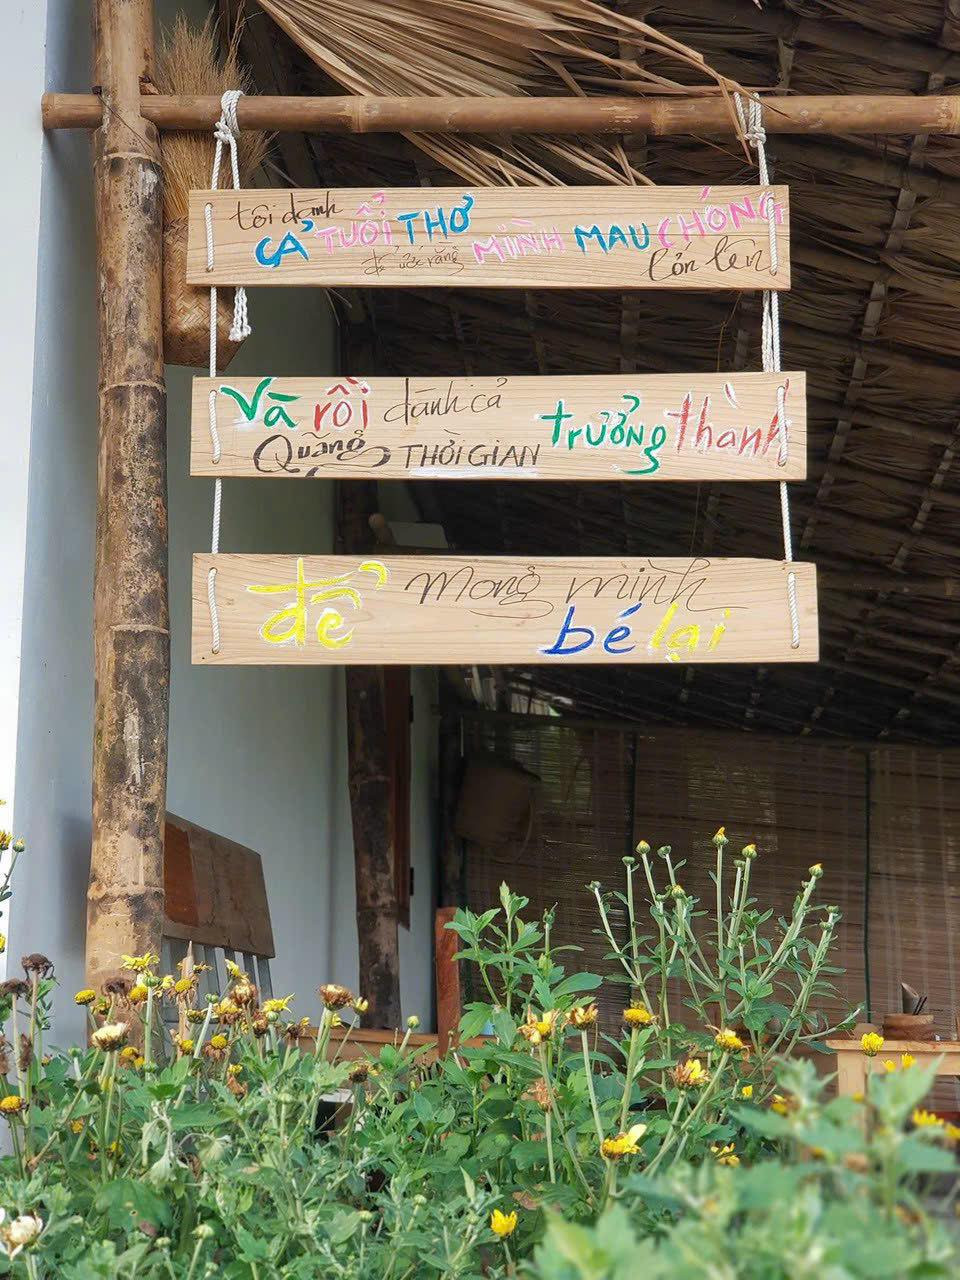 tôi dành
CẢ TUỔI THƠ
để ước rằng
MÌNH MAU CHÓNG
lớn lên
Và rồi dành cả
Quãng THỜI GIAN
trưởng thành
để mong mình
bé lại